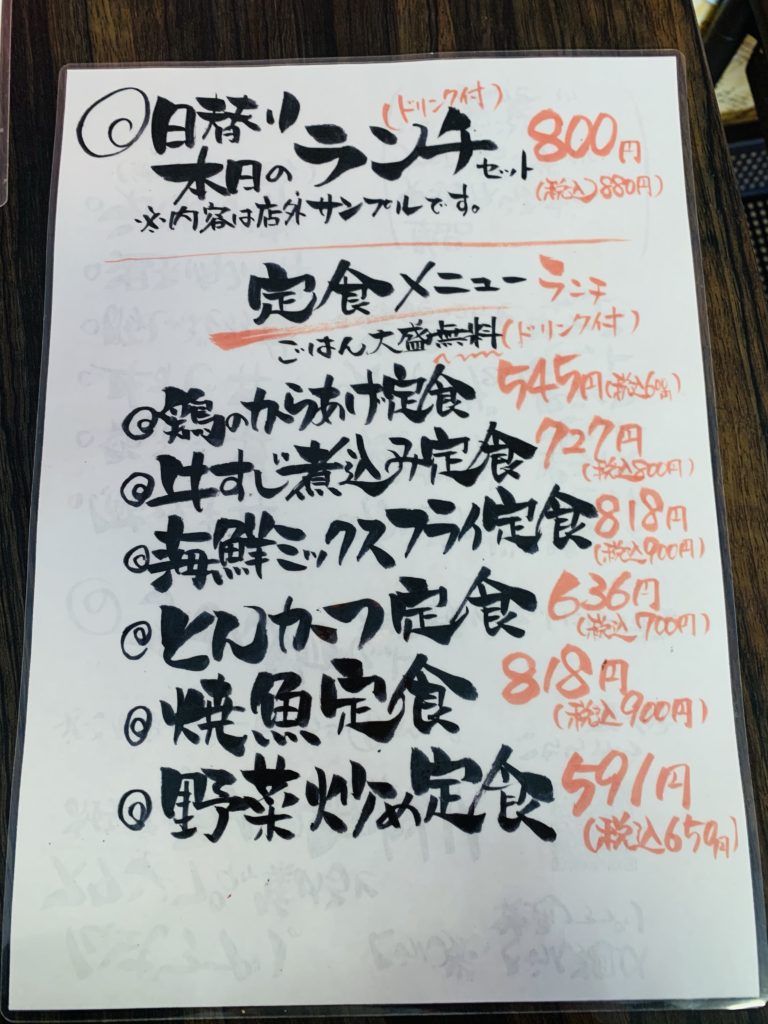 ◎日替り (ドリンク付)
本日のランチセット 800円
(税込)880円)
※内容は店外サンプルです。
定食メニュー ランチ
ごはん大盛無料 (ドリンク付)
◎鶏のからあげ定食 545円(税込600円)
◎牛すじ煮込み定食 727円
(税込800円)
◎海鮮ミックスフライ定食 818円
(税込900円)
◎とんかつ定食 636円
(税込700円)
◎焼魚定食 818円
(税込900円)
◎野菜炒め定食 591円
(税込650円)